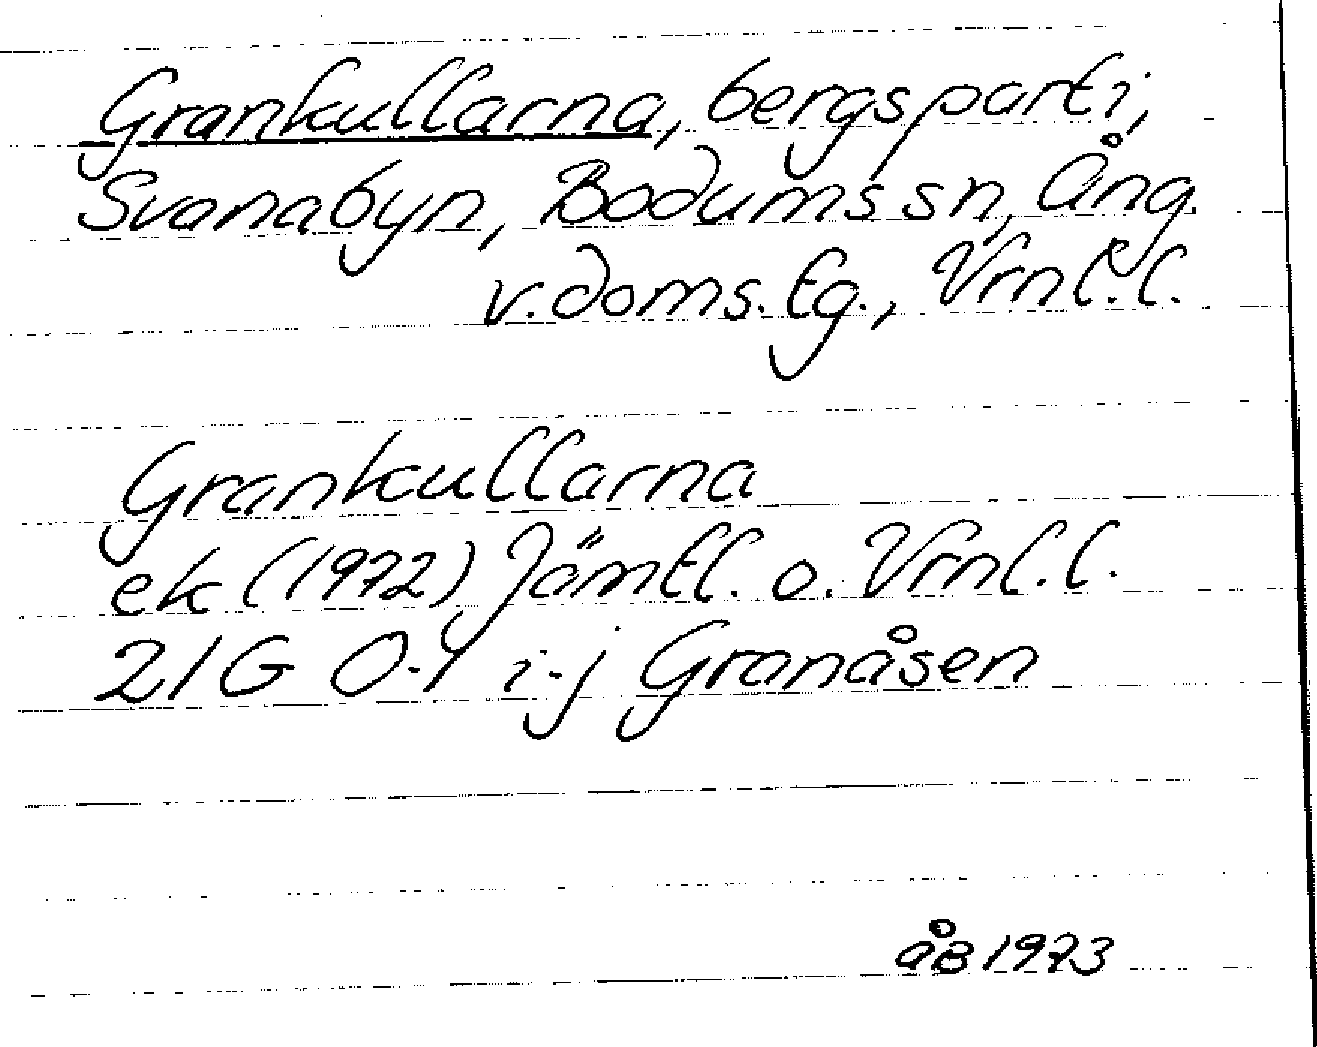 Grankullarna, bergsparti,
Svanabyn, Bodums sn, Ång.
v. doms. tg., Vrnl. l.
Grankullarna
ek (1972) Jämtl. o. Vrnl. l.
21G 0-1 i-j Granåsen
åB 1973